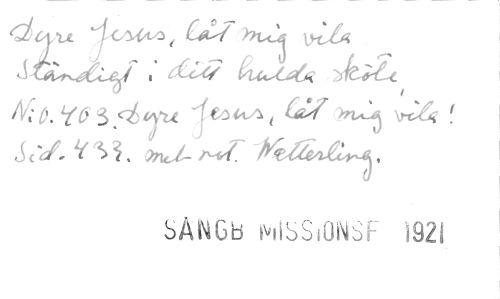 Dyre Jesus, låt mig vila
Ständigt i ditt hulda sköte,
N:o. 403. Dyre Jesus, låt mig vila!
Sid. 433. met not. Wetterling.
SÅNGB MISSIONSF 1921